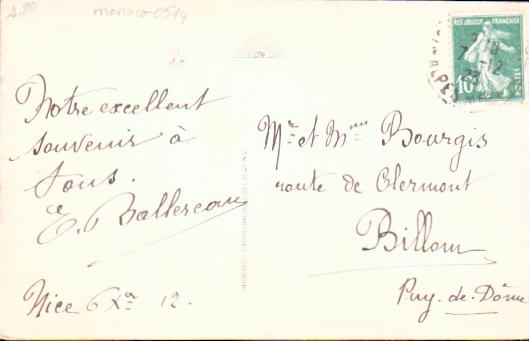 1.80
monaco-0514
Notre excellent
souvenir à
tous.
Nice 6 Xbre 12.
Mr et Mme Bourgis
route de Clermont
Billom
Puy-de-Dôme
10
POSTES